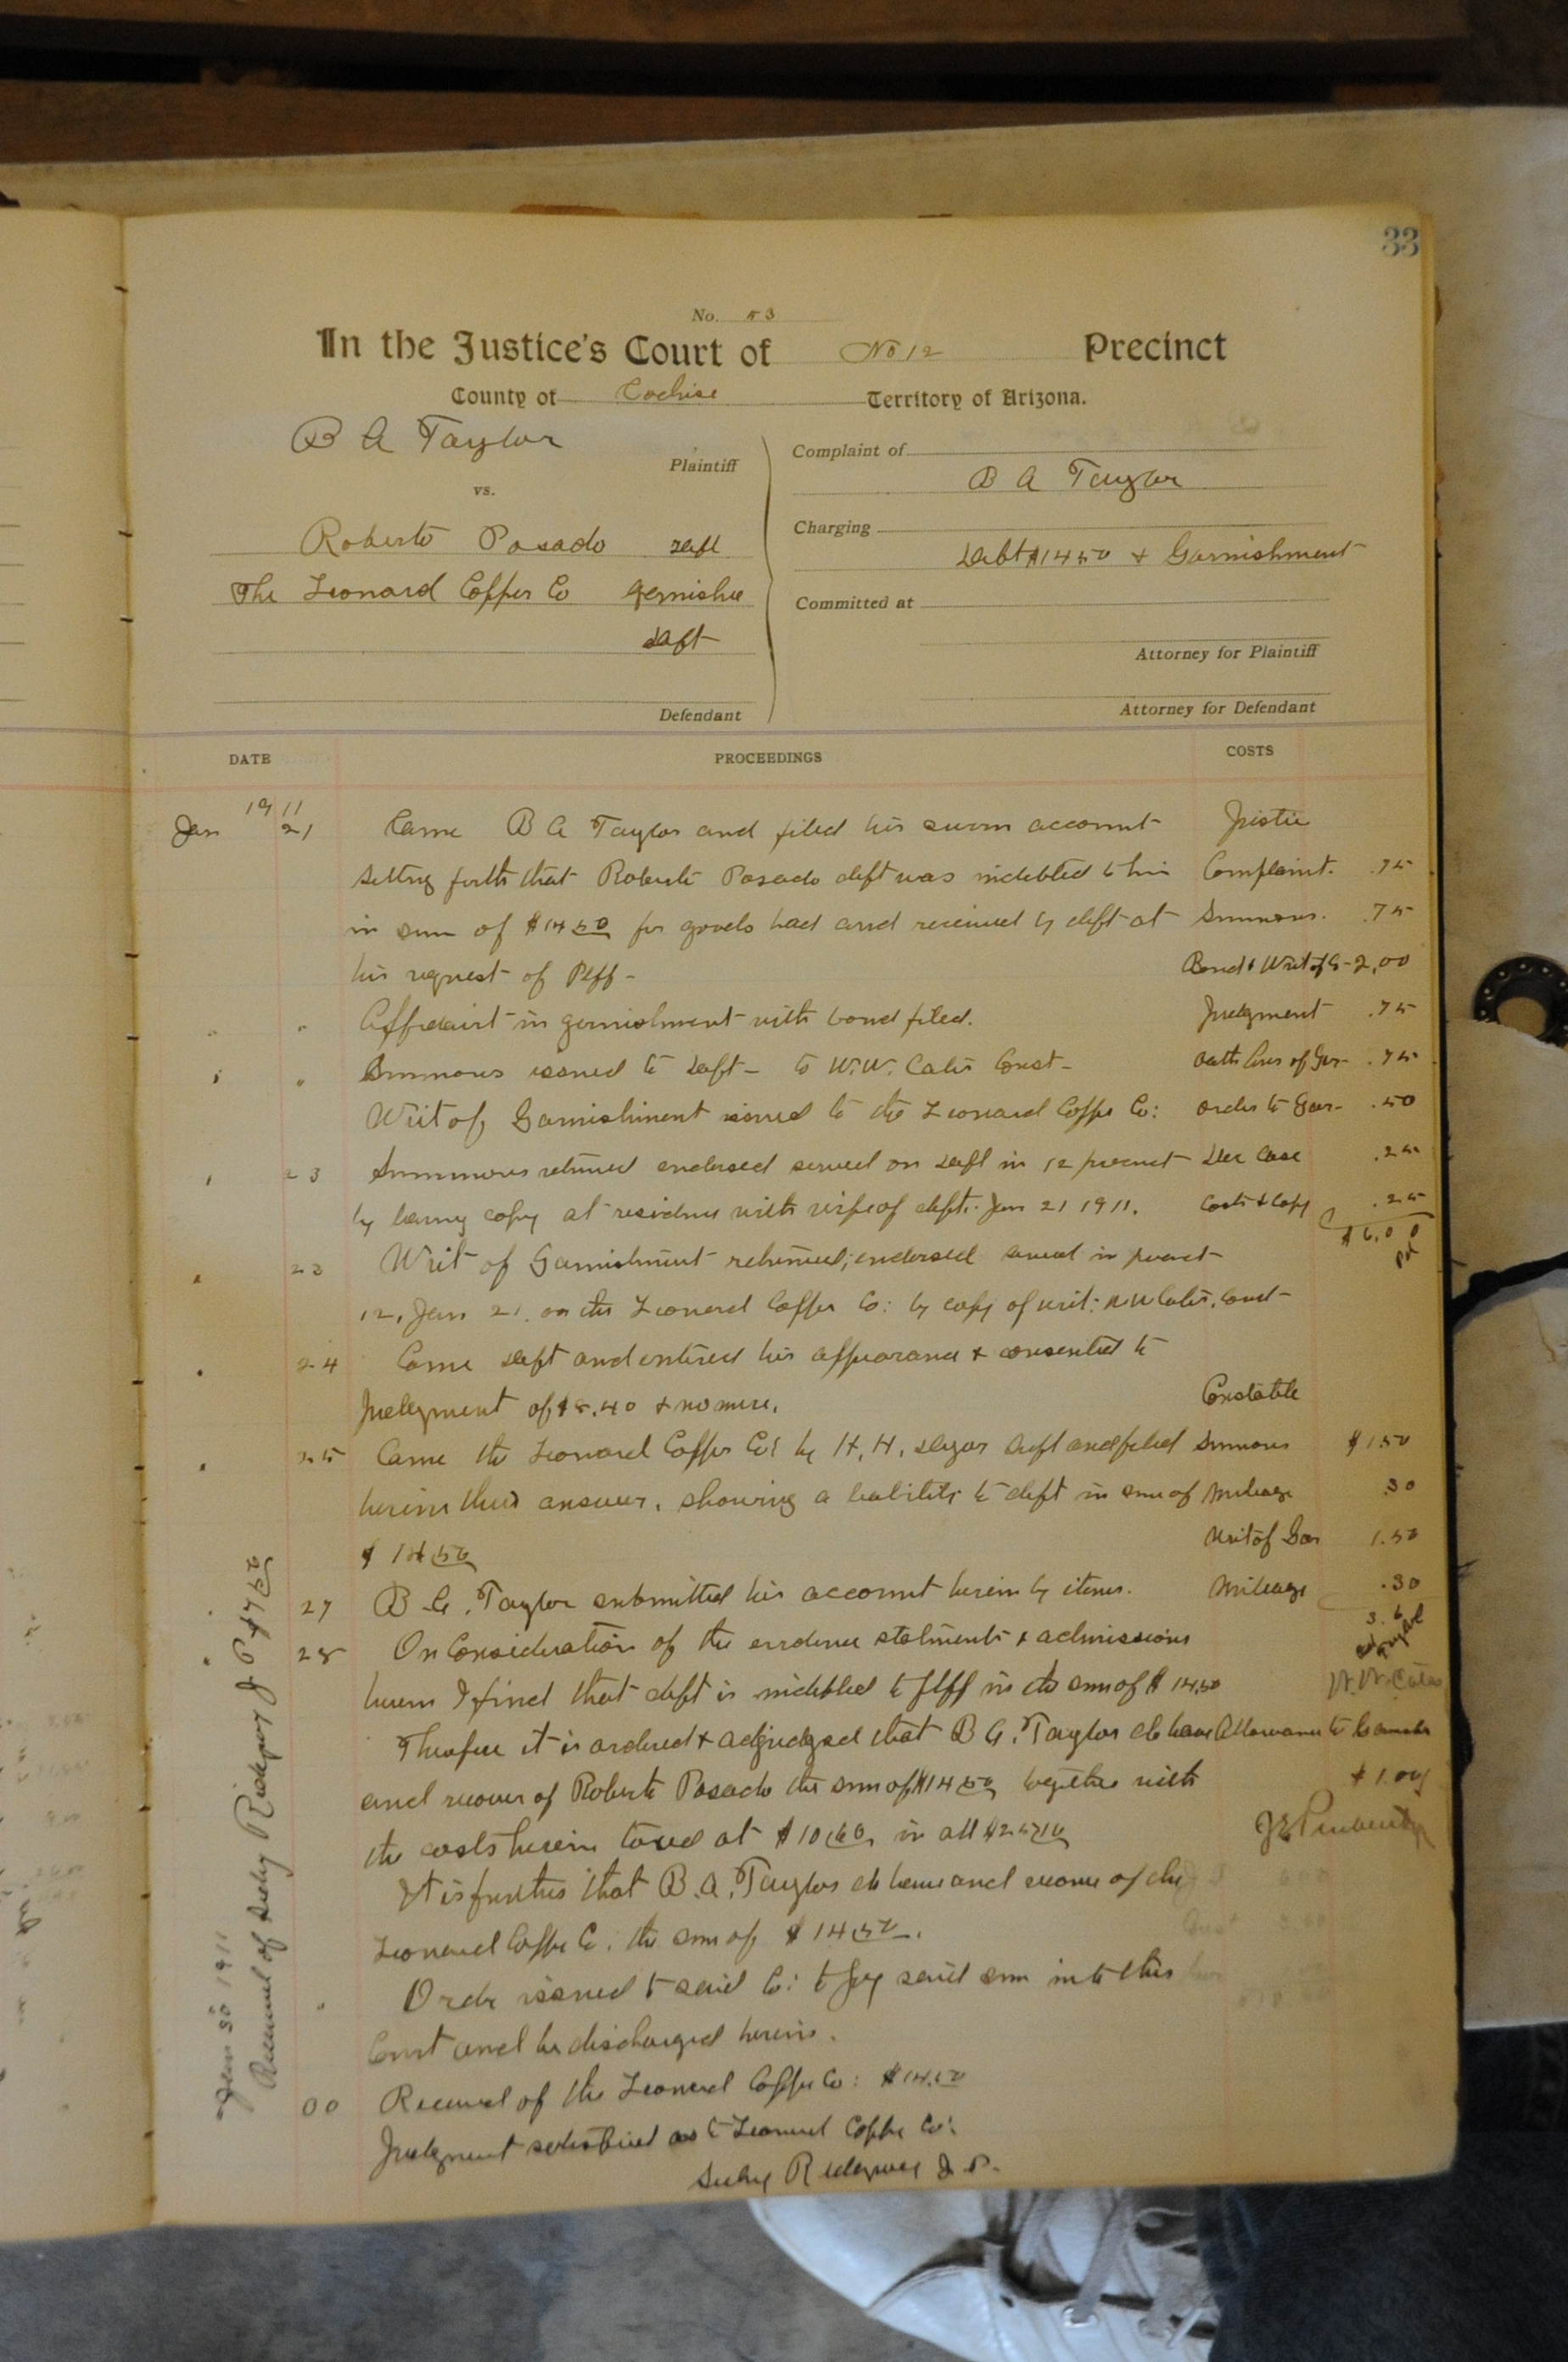 33
No. 53
In the Justice's Court of No 12 Precinct
County of Cochise Territory of Arizona.
B A Taylor
Plaintiff
vs.
Roberto Posado Deft
The Leonard Copper Co garnishee
Deft
Defendant
Complaint of
B A Taylor
Charging
Debt $14 50 & Garnishment
Committed at
Attorney for Plaintiff
Attorney for Defendant
DATE PROCEEDINGS COSTS
1911
Jan 21 Came B A Taylor and filed his sworn account Justice
setting forth that Roberto Posado deft was indebted to him Complaint. .75
in sum of $14 50 for goods had and received by deft at Summons. .75
his request of Plff - Bond & Writ of G - 2.00
" " Affidavit in garnishment with bond filed. Judgment .75
" " Summons issued to Deft - to W.W. Cates Const - Oath Ans of Gar - .75
Writ of Garnishment issued to the Leonard Copper Co: Order to Gar - .50
" 23 Summons returned endorsed served on Deft in 12 precinct Doc Case .25
by leaving copy at residence with wife of deft. Jan 21 1911. Costs & Copy .25
$6.00
Pd
" 23 Writ of Garnishment returned; endorsed served in precinct
12, Jan 21. on the Leonard Copper Co: by copy of writ: W W Cates, Const -
" 24 Came Deft and entered his appearance & consented to
Judgment of $8.40 & no more. Constable
" 25 Came the Leonard Copper Co: by H. H. Supt and filed Summons $1.50
herein their answer, showing a liability to deft in sum of Mileage .30
$ 14 50 Writ of Gar 1.50
27 B A. Taylor submitted his account herein by items. Mileage .30
3.6
" 28 On Consideration of the evidence statments & admissions
herein I find that deft is indebted to Plff in the sum of $ 14.50 W. W. Cates
Therefore it is ordered & adjudged that B A. Taylor do have Allowance to
and recover of Roberto Posado the sum of $14 50 together with $1.00
the costs herein taxed at $10 60, in all $25 10
It is further that B. A. Taylor do have and recover of the
Leonard Copper Co. the sum of $14 50.
" Order issued to said Co: to pay said sum into this
Court and be discharged herein.
30 Received of the Leonard Copper Co: $14.50
Judgment satisfied as to Leonard Copper Co:
Ridgway J. P.
Jan 30 1911
Received of Ridgway J P $7 50